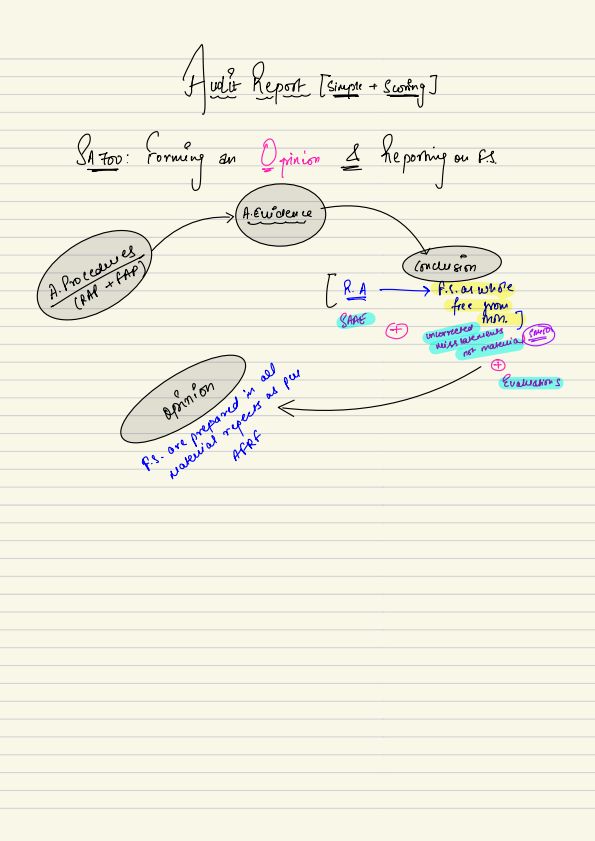 Audit Report [Simple + Scoring]
SA 700: Forming an Opinion & Reporting on F.S.
A. Evidence
A. Procedures
(RAP + FAP)
Conclusion
[R.A → F.S. as whole
free from
MM.]
SAAE
+
uncorrected
misstatements
not material
+
Evaluations
Opinion
F.S. are prepared in all
material repects as per
AFRF